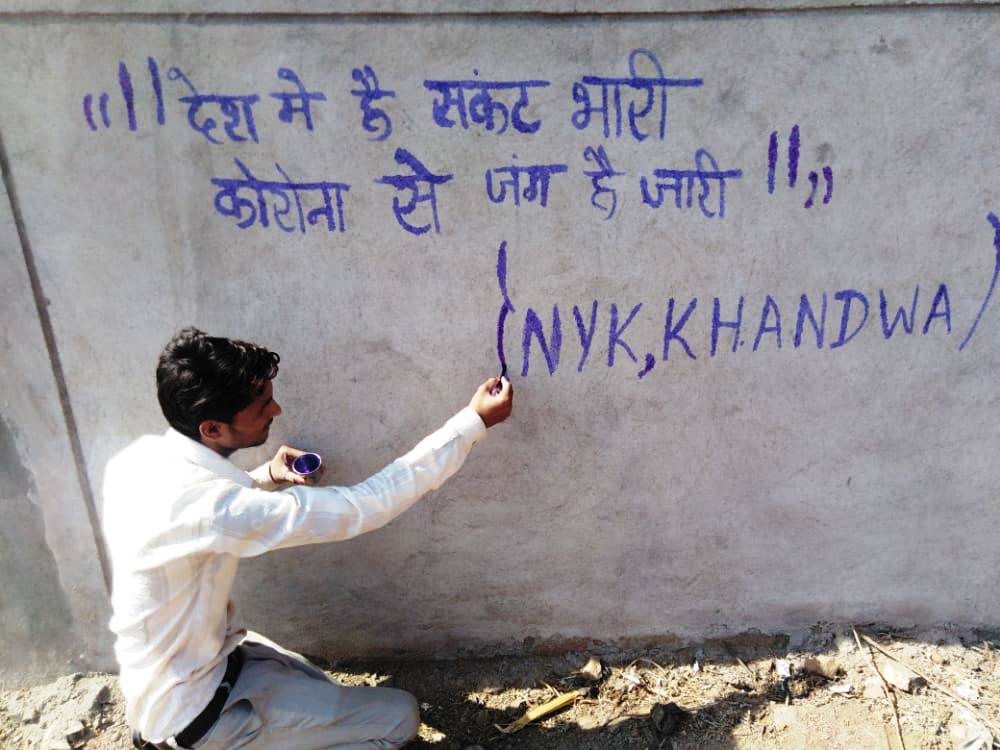 "देश मे है संकट भारी
कोरोना से जंग है जारी"
(NYK, KHANDWA)